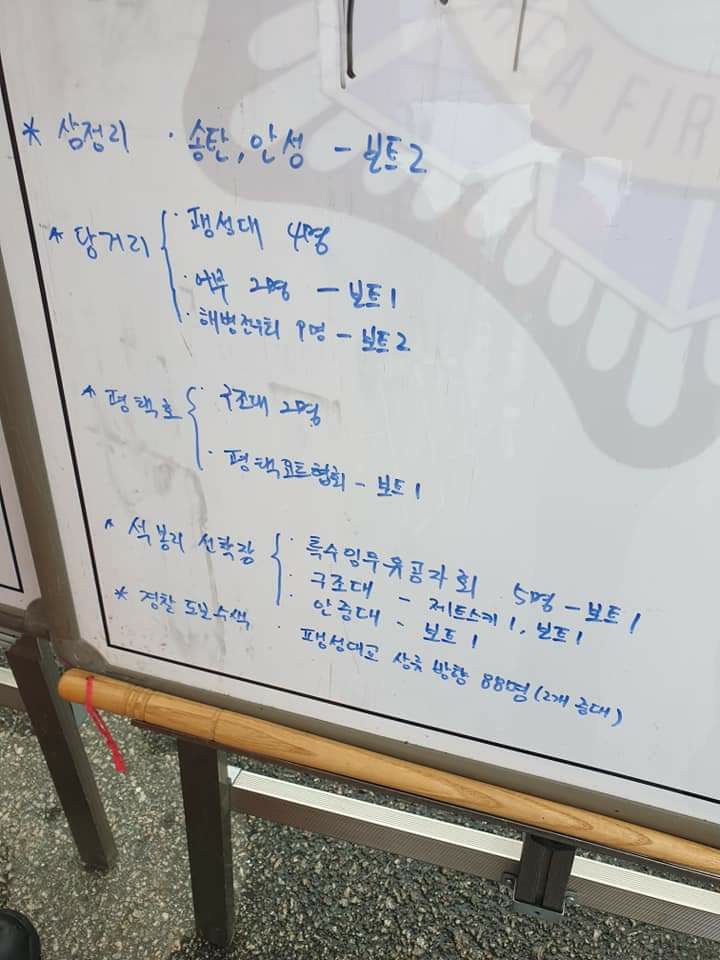 * 삼정리 · 송탄, 안성 - 보트2
* 당거리 · 팽성대 4명
· 어부 2명 - 보트1
· 해병전우회 9명 - 보트2
* 평택호 · 구조대 2명
· 평택요트협회 - 보트1
* 석봉리 선착장 · 특수임무유공자회 5명 - 보트1
· 구조대 - 제트스키1, 보트1
· 안중대 - 보트1
* 경찰 도보수색 · 팽성대교 상류 방향 88명 (2개 중대)
FIR